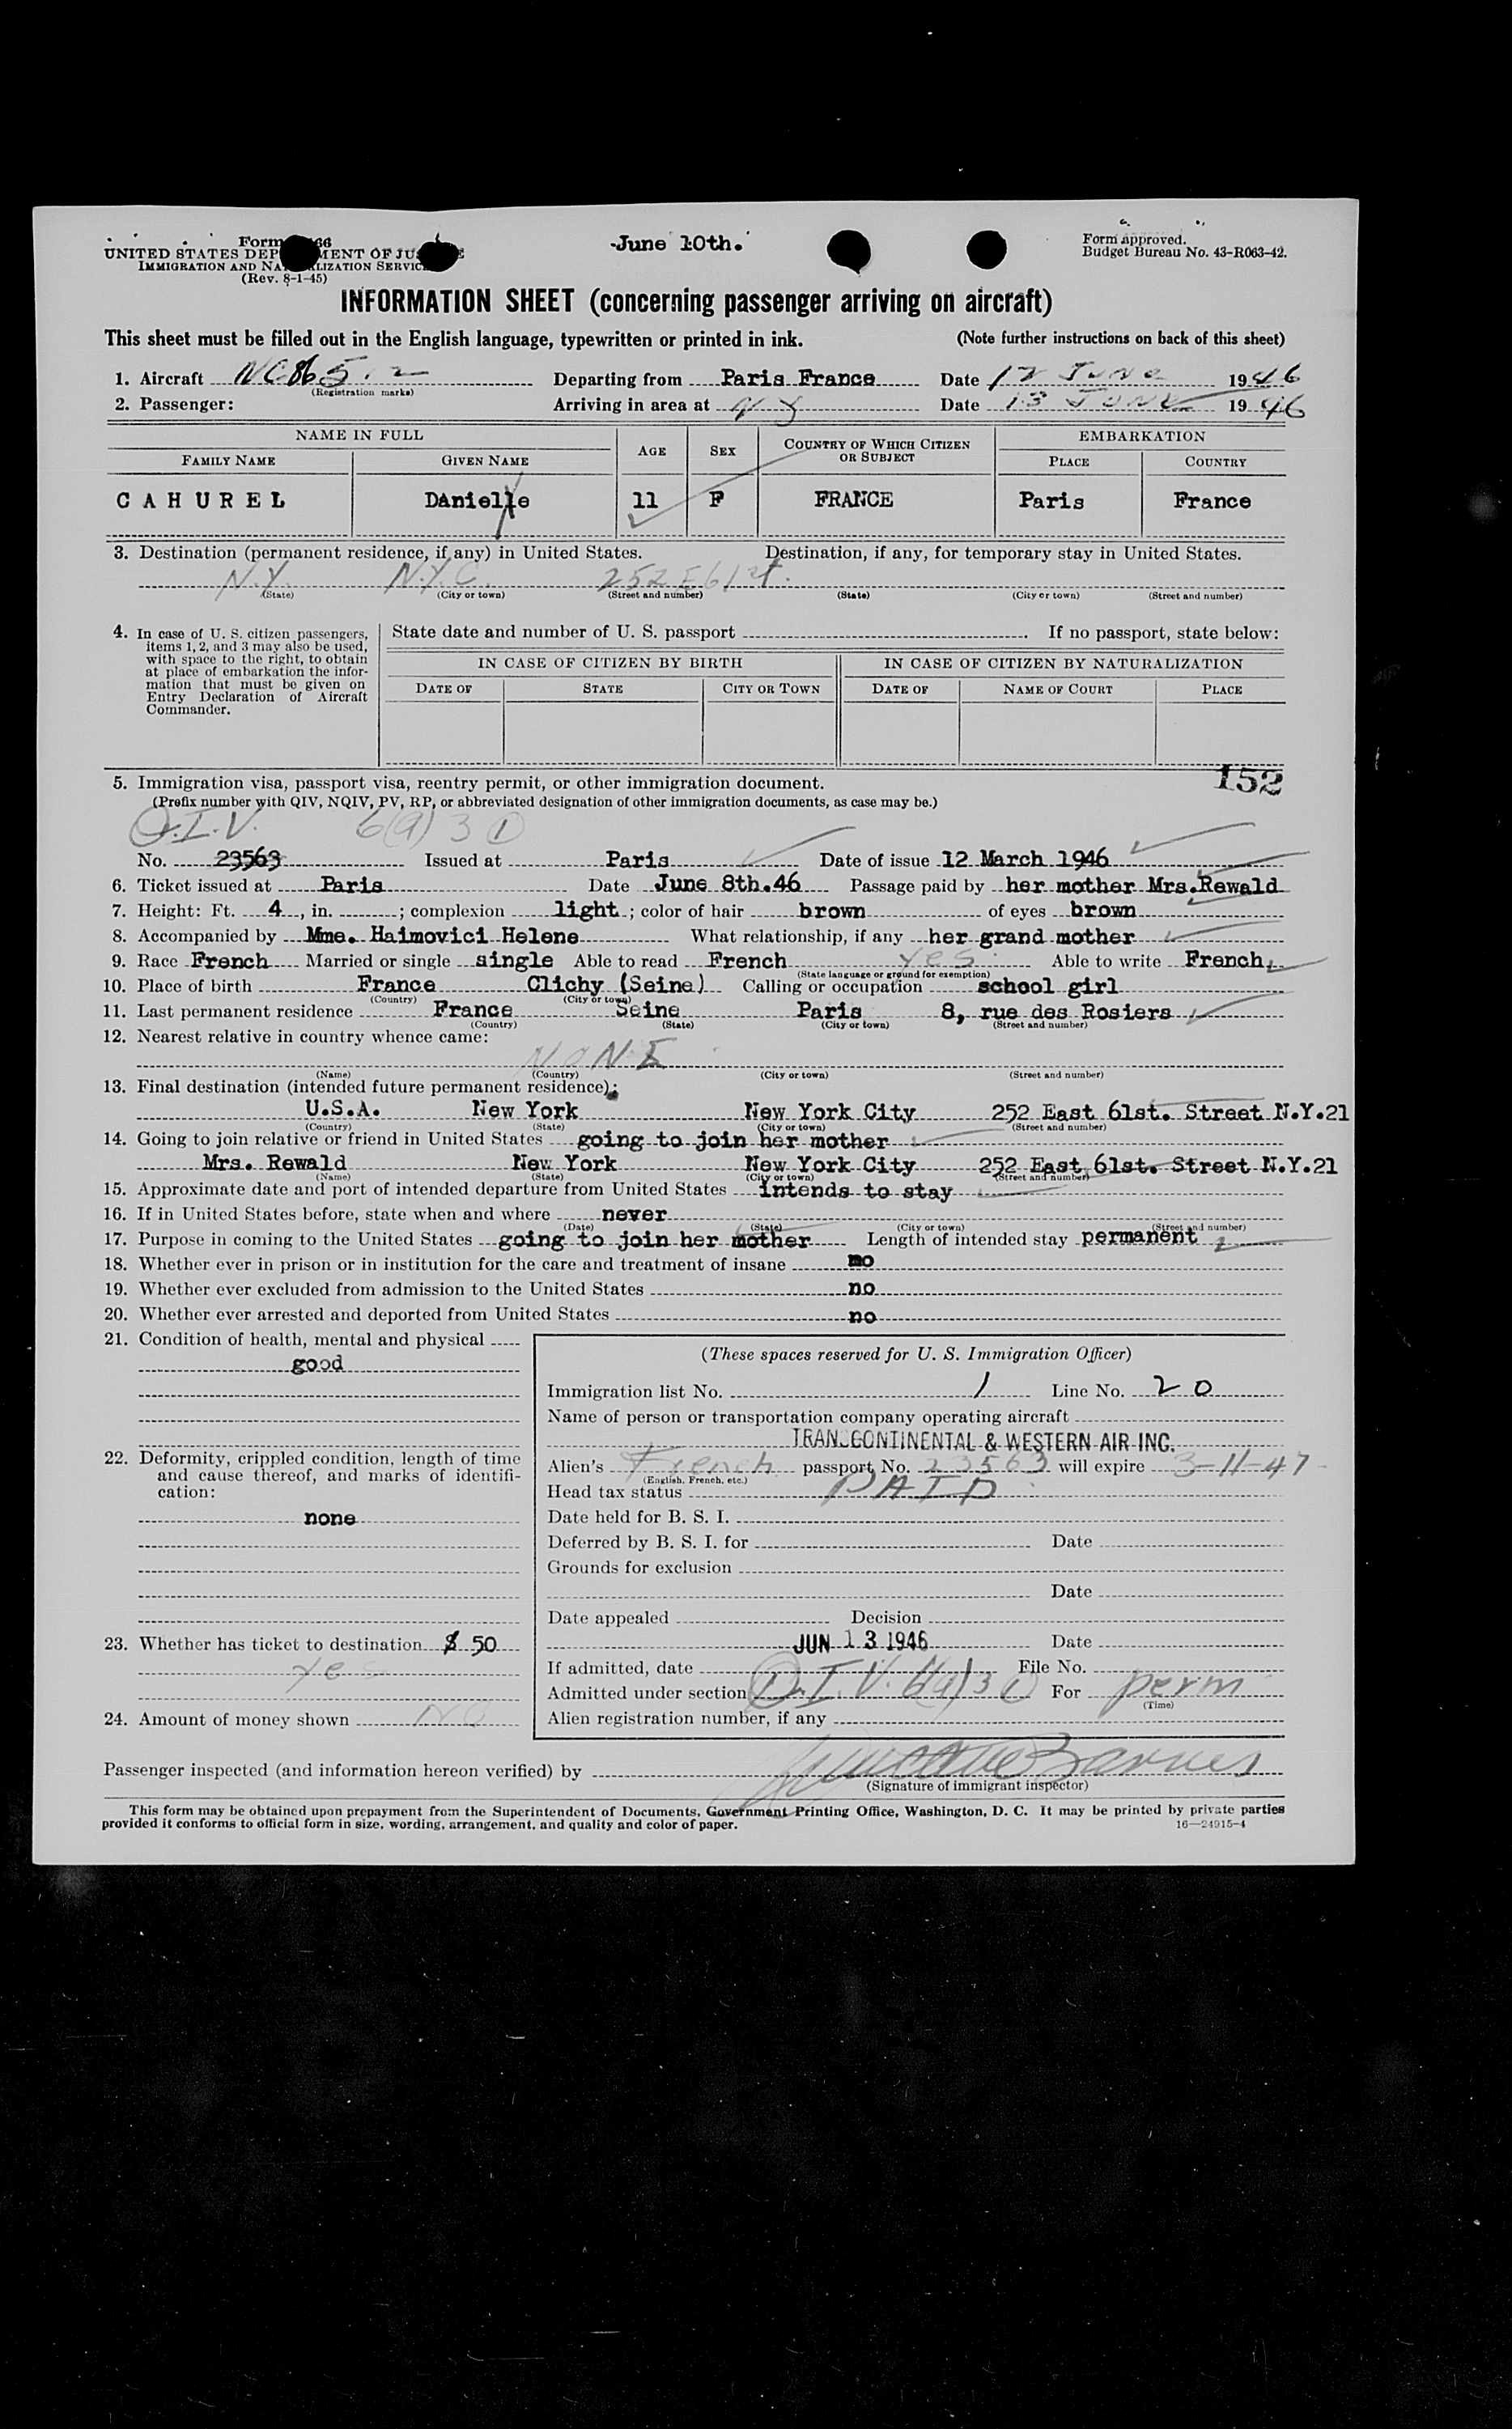 Form 66
June 10th.
Form approved.
UNITED STATES DEP MENT OF JUS E
Budget Bureau No. 43-R063-42.
IMMIGRATION AND NA LIZATION SERVIC
(Rev. 8-1-45)
INFORMATION SHEET (concerning passenger arriving on aircraft)
This sheet must be filled out in the English language, typewritten or printed in ink. (Note further instructions on back of this sheet)
1. Aircraft NC86512 Departing from Paris France Date 12 June 1946
(Registration marks)
2. Passenger: Arriving in area at NY Date 13 JUNE 1946
NAME IN FULL AGE SEX COUNTRY OF WHICH CITIZEN OR SUBJECT EMBARKATION
FAMILY NAME GIVEN NAME PLACE COUNTRY
CAHUREL DAnielle 11 F FRANCE Paris France
3. Destination (permanent residence, if any) in United States. Destination, if any, for temporary stay in United States.
N.Y. N.Y.C. 252 E 61 st.
(State) (City or town) (Street and number) (State) (City or town) (Street and number)
4. In case of U. S. citizen passengers, items 1, 2, and 3 may also be used, with space to the right, to obtain at place of embarkation the information that must be given on Entry Declaration of Aircraft Commander.
State date and number of U. S. passport If no passport, state below:
IN CASE OF CITIZEN BY BIRTH IN CASE OF CITIZEN BY NATURALIZATION
DATE OF STATE CITY OR TOWN DATE OF NAME OF COURT PLACE
152
5. Immigration visa, passport visa, reentry permit, or other immigration document.
(Prefix number with QIV, NQIV, PV, RP, or abbreviated designation of other immigration documents, as case may be.)
Q.I.V. 6(a)3 1
No. 23563 Issued at Paris Date of issue 12 March 1946
6. Ticket issued at Paris Date June 8th.46 Passage paid by her mother Mrs.Rewald
7. Height: Ft. 4, in. ; complexion light ; color of hair brown of eyes brown
8. Accompanied by Mme. Haimovici Helene What relationship, if any her grand mother
9. Race French Married or single single Able to read French yes Able to write French
(State language or ground for exemption)
10. Place of birth France Clichy (Seine) Calling or occupation school girl
(Country) (City or town)
11. Last permanent residence France Seine Paris 8, rue des Rosiers
(Country) (State) (City or town) (Street and number)
12. Nearest relative in country whence came:
NONE
(Name) (Country) (City or town) (Street and number)
13. Final destination (intended future permanent residence):
U.S.A. New York New York City 252 East 61st. Street N.Y.21
(Country) (State) (City or town) (Street and number)
14. Going to join relative or friend in United States going to join her mother
Mrs. Rewald New York New York City 252 East 61st. Street N.Y.21
(Name) (State) (City or town) (Street and number)
15. Approximate date and port of intended departure from United States intends to stay
16. If in United States before, state when and where never
(Date) (State) (City or town) (Street and number)
17. Purpose in coming to the United States going to join her mother Length of intended stay permanent
18. Whether ever in prison or in institution for the care and treatment of insane no
19. Whether ever excluded from admission to the United States no
20. Whether ever arrested and deported from United States no
21. Condition of health, mental and physical
good
22. Deformity, crippled condition, length of time and cause thereof, and marks of identification:
none
23. Whether has ticket to destination $ 50
Yes
24. Amount of money shown NO
(These spaces reserved for U. S. Immigration Officer)
Immigration list No. 1 Line No. 20
Name of person or transportation company operating aircraft
TRANSCONTINENTAL & WESTERN AIR INC.
Alien's French passport No. 23563 will expire 3-11-47
(English, French, etc.)
Head tax status PAID
Date held for B. S. I.
Deferred by B. S. I. for Date
Grounds for exclusion
Date
Date appealed Decision
JUN 13 1946 Date
If admitted, date File No.
Admitted under section Q.I.V. 6(a)3 1 For perm
(Time)
Alien registration number, if any
Passenger inspected (and information hereon verified) by Barnes
(Signature of immigrant inspector)
This form may be obtained upon prepayment from the Superintendent of Documents, Government Printing Office, Washington, D. C. It may be printed by private parties
provided it conforms to official form in size, wording, arrangement, and quality and color of paper.
16—24915-4